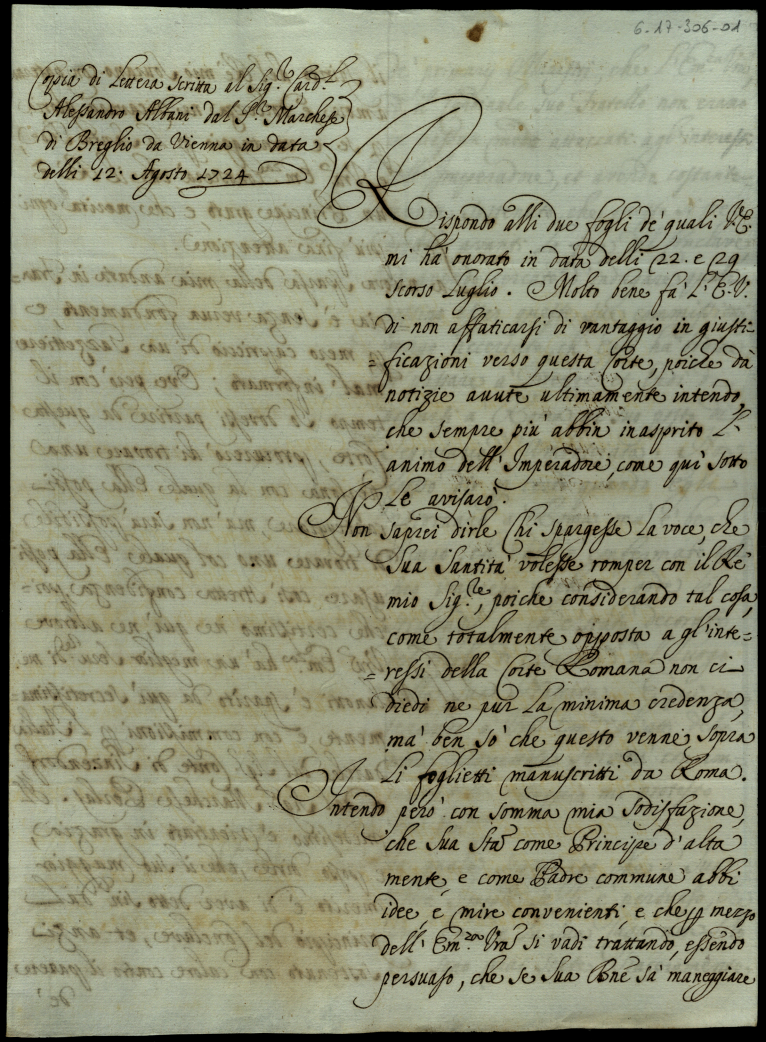 6-17-306-01
Copia di Lettera scritta al Sig.re Card.l
Alessandro Albani dal S.re Marchese
di Breglio da Vienna in data
delli 12. Agosto 1724
Rispondo alli due fogli de' quali V.E.
mi hà onorato in data delli 22. e 29
scorso Luglio. Molto bene fà L'E.V.
di non affaticarsi di vantaggio in giusti-
=ficazioni verso questa Corte, poiche dà
notizie avute ultimamente intendo,
che sempre più abbin inasprito L'
animo dell'Imperadore, come quì sotto
Le avisarò.
Non saprei dirle Chi spargesse La voce, che
Sua Santità volesse romper con il Rè
mio Sig.re, poiche considerando tal cosa,
come totalmente opposta a gl'inte=
=ressi della Corte Romana non ci
diedi ne pur La minima credenza,
mà ben sò che questo venne sopra
Li foglietti manuscritti da Roma.
Intendo però con somma mia sodisfazione,
che Sua Stà come Principe d'alta
mente, e come Padre commune abbi
idee, e mire convenienti, e che p mezzo
dell'Em.za Vra si vadi trattando, essendo
persuaso, che se Sua Bne sà maneggiare